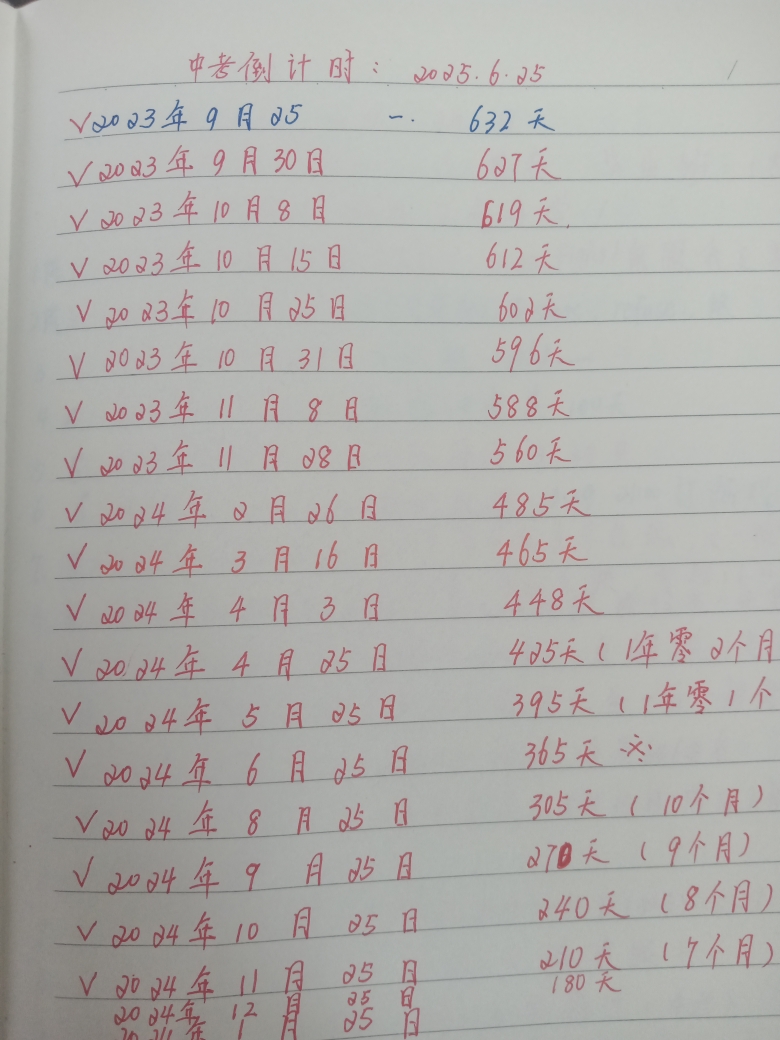 中考倒计时：2025.6.25
√2023年9月25 一. 632天
√2023年9月30日 627天
√2023年10月8日 619天
√2023年10月15日 612天
√2023年10月25日 602天
√2023年10月31日 596天
√2023年11月8日 588天
√2023年11月28日 560天
√2024年2月26日 485天
√2024年3月16日 465天
√2024年4月3日 448天
√2024年4月25日 425天（1年零2个月
√2024年5月25日 395天（1年零1个
√2024年6月25日 365天 ※
√2024年8月25日 305天（10个月）
√2024年9月25日 270天（9个月）
√2024年10月25日 240天（8个月）
√2024年11月25日 210天（7个月）
2024年12月25日 180天
年1月25日